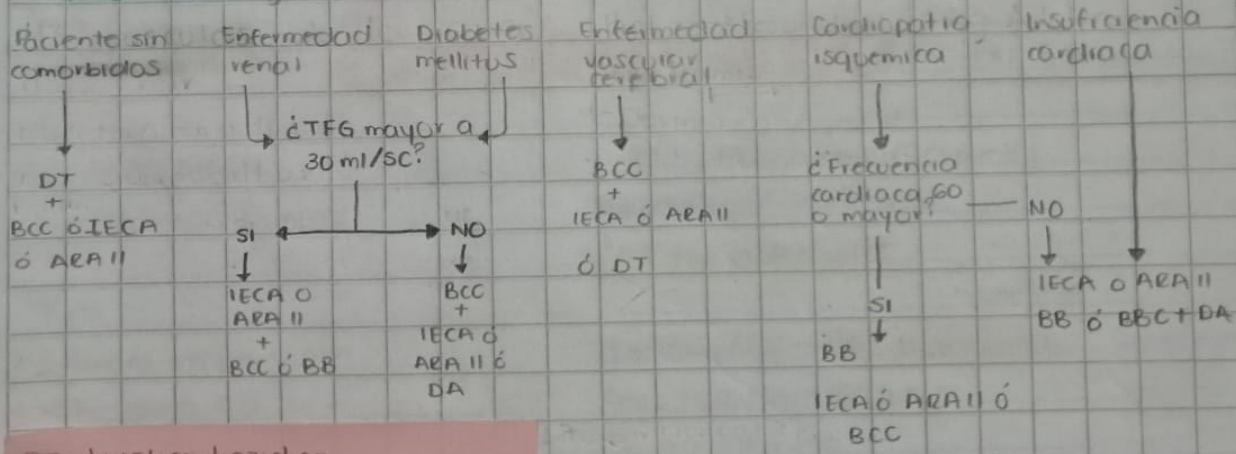 Paciente sin
comorbidos
DT
+
BCC ó IECA
ó ARA II
Enfermedad
renal
Diabetes
mellitus
¿TFG mayor a
30 ml/SC?
SI
IECA O
ARA II
+
BCC ó BB
NO
BCC
+
IECA ó
ARA II ó
DA
Enfermedad
vascular
cerebral
BCC
+
IECA ó ARA II
ó DT
Cardiopatia
isquemica
¿Frecuencia
cardiaca 60
o mayor?
SI
BB
IECA ó ARA II ó
BCC
NO
Insuficiencia
cardiaca
IECA O ARA II
BB ó BBC + DA